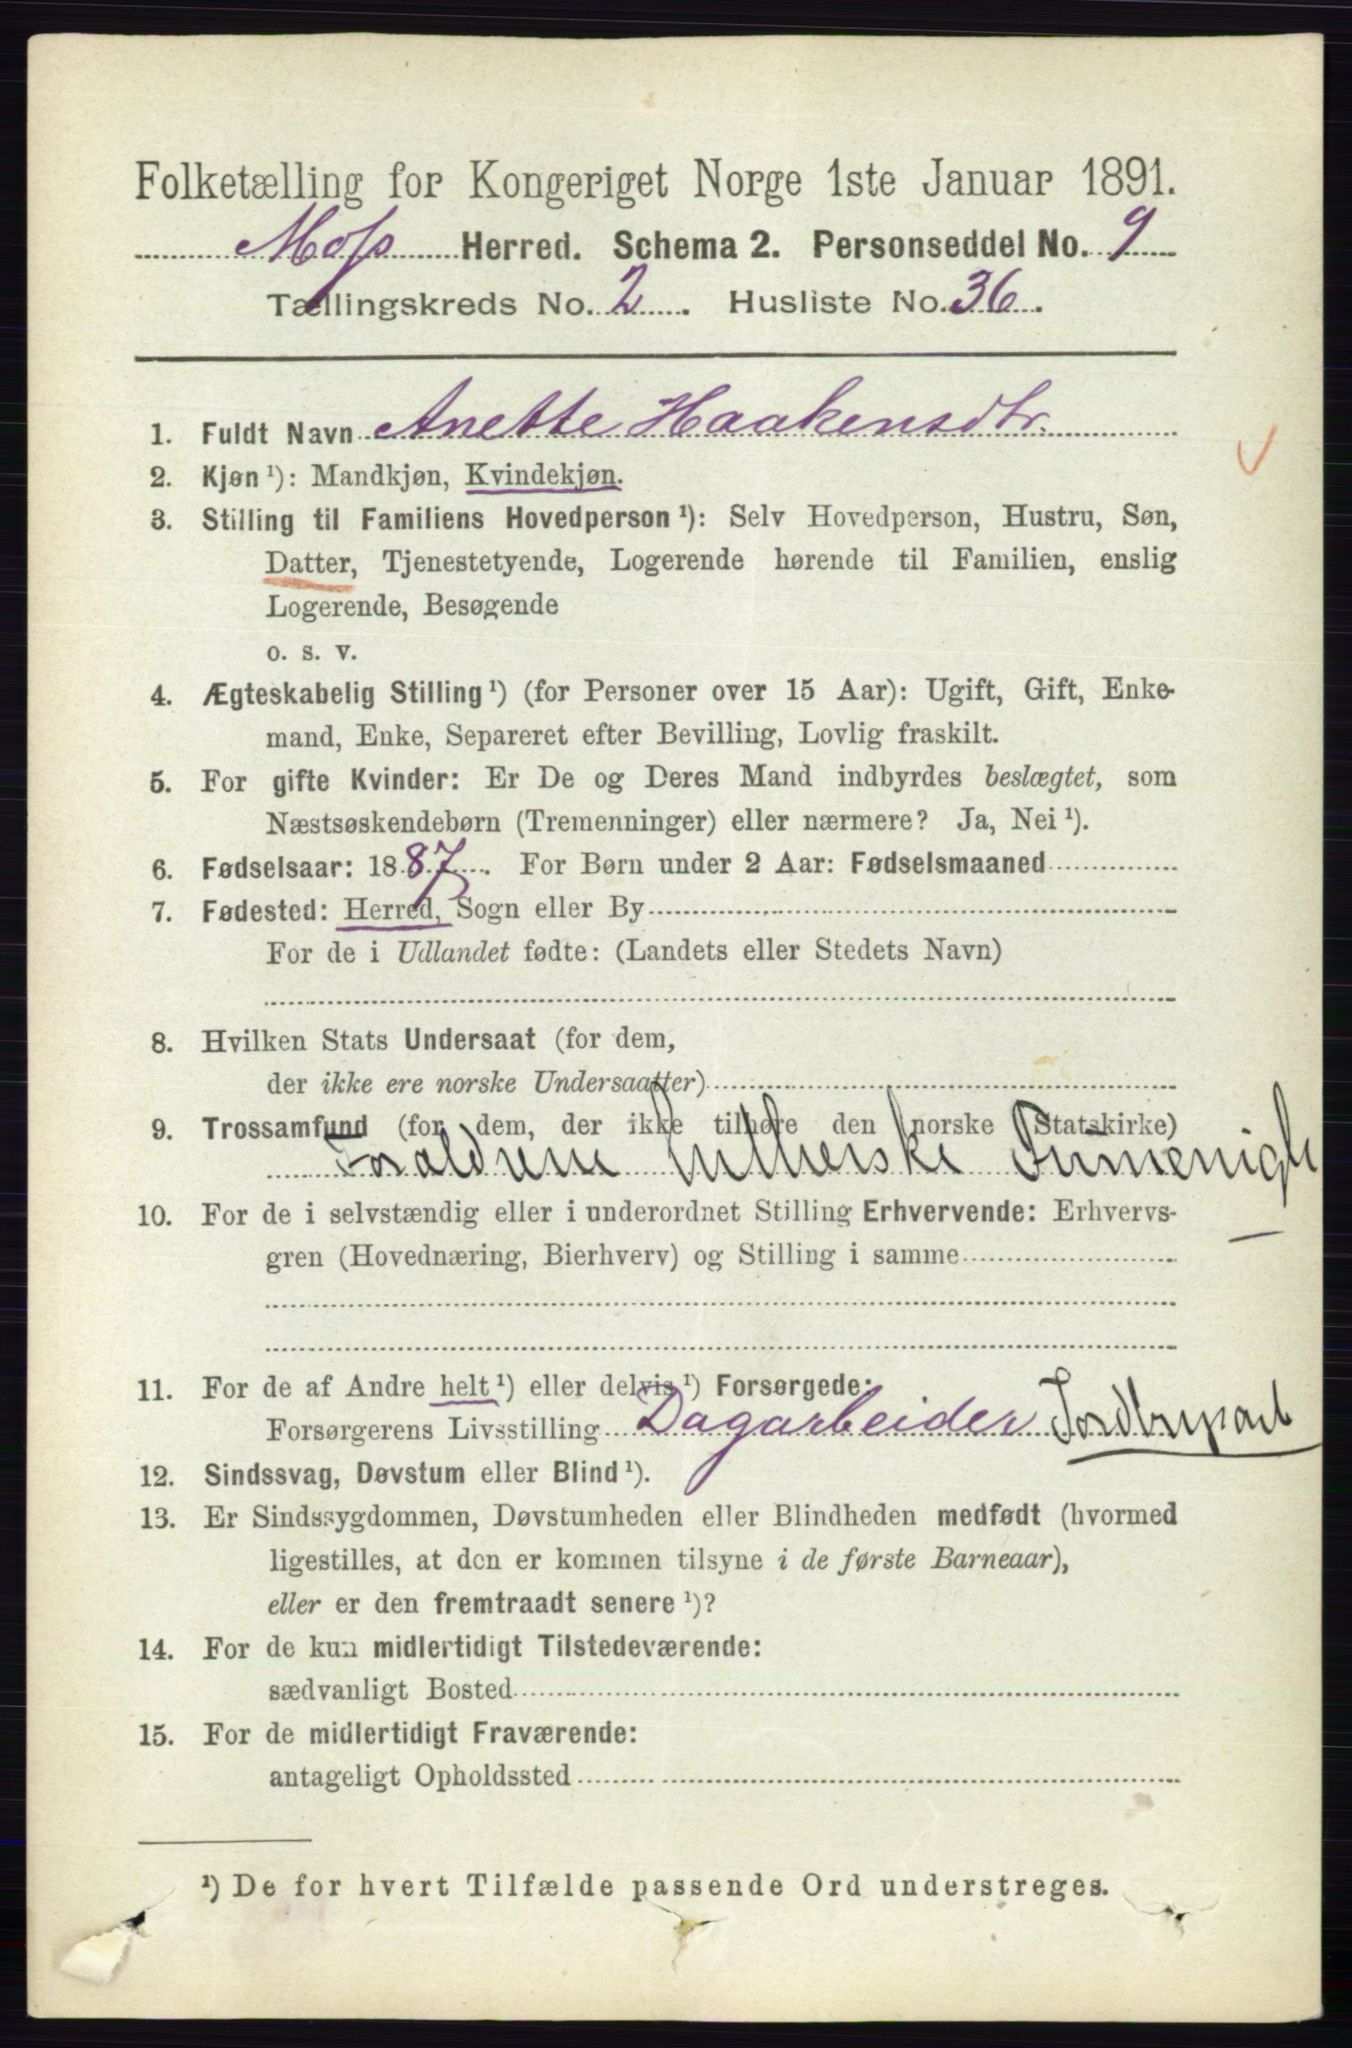 Folketælling for Kongeriget Norge 1ste Januar 1891.
Moss Herred. Schema 2. Personseddel No. 9
Tællingskreds No. 2. Husliste No. 36.
1. Fuldt Navn Anette Haakensdtr.
2. Kjøn ¹): Mandkjøn, Kvindekjøn.
3. Stilling til Familiens Hovedperson ¹): Selv Hovedperson, Hustru, Søn,
Datter, Tjenestetyende, Logerende hørende til Familien, enslig
Logerende, Besøgende
o. s. v.
4. Ægteskabelig Stilling ¹) (for Personer over 15 Aar): Ugift, Gift, Enke-
mand, Enke, Separeret efter Bevilling, Lovlig fraskilt.
5. For gifte Kvinder: Er De og Deres Mand indbyrdes beslægtet, som
Næstsøskendebørn (Tremenninger) eller nærmere? Ja, Nei ¹).
6. Fødselsaar: 1887. For Børn under 2 Aar: Fødselsmaaned
7. Fødested: Herred, Sogn eller By
For de i Udlandet fødte: (Landets eller Stedets Navn)
8. Hvilken Stats Undersaat (for dem,
der ikke ere norske Undersaatter)
9. Trossamfund (for dem, der ikke tilhøre den norske Statskirke)
Foraldrene lutherske
10. For de i selvstændig eller i underordnet Stilling Erhvervende: Erhvervs-
gren (Hovednæring, Bierhverv) og Stilling i samme
11. For de af Andre helt ¹) eller delvis ¹) Forsørgede:
Forsørgerens Livsstilling Dagarbeider Jordbrugsarb
12. Sindssvag, Døvstum eller Blind ¹).
13. Er Sindssygdommen, Døvstumheden eller Blindheden medfødt (hvormed
ligestilles, at den er kommen tilsyne i de første Barneaar),
eller er den fremtraadt senere ¹)?
14. For de kun midlertidigt Tilstedeværende:
sædvanligt Bosted
15. For de midlertidigt Fraværende:
antageligt Opholdssted
¹) De for hvert Tilfælde passende Ord understreges.